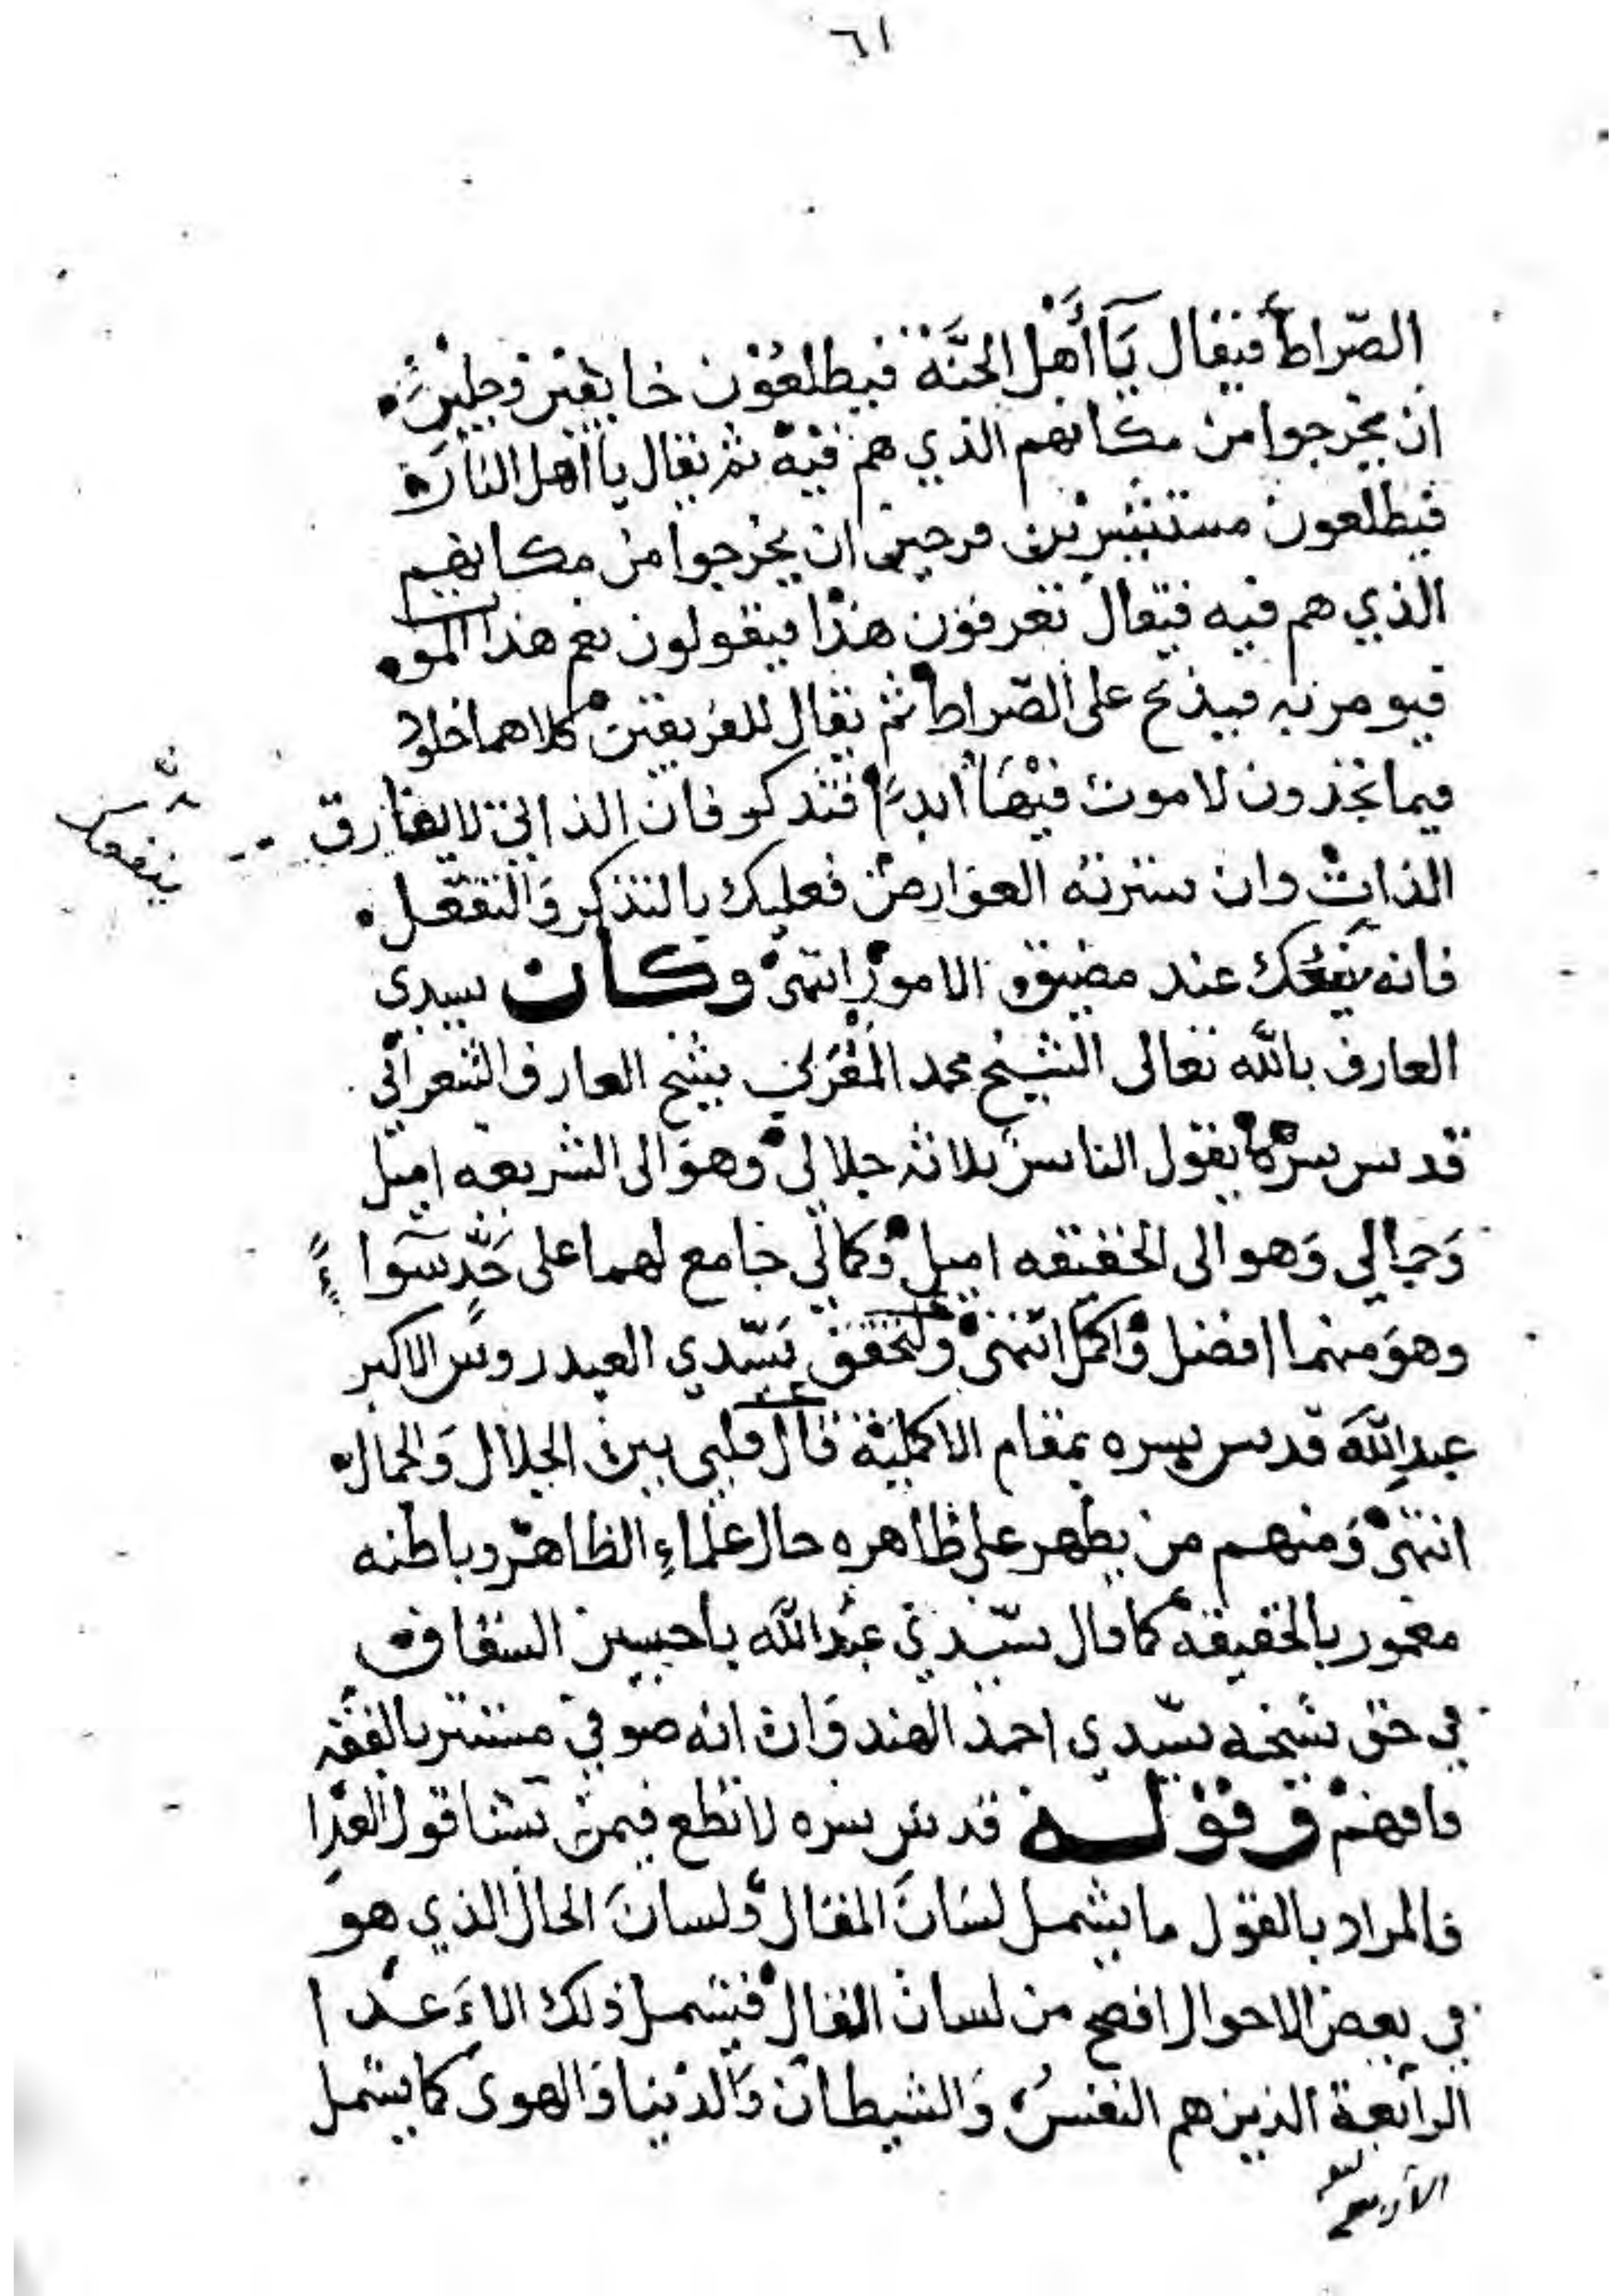 ٦١
الصّراط فيقال يَا أَهْل الجَنَّة فيطلعُوْن خايفين وجلين
ان يخرجوا من مكانهم الذي هم فيه ثم يقال يا اهل النار
فيطلعون مستبشرين فرحين ان يخرجوا من مكانهم
الذي هم فيه فيقال تعرفون هذا فيقولون نعم هذا الموت
فيومر به فيذبح على الصّراط ثم يقال للفريقين كلاهما خلود
فيما تجدون لا موت فيْهَا ابدا فتذكر فان الذاتي لا يفارق
الذات وان سترته العوارض فعليك بالتذكر وَالتعقل
فانه ينفعك عند مضيق الامور انتهى وكان سيدي
العارف بالله تعالى الشيخ محمد المغربي شيخ العارف الشعراني
قدس سره يقول الناس ثلاثه جلالي وهو الى الشريعه اميل
وَجمالي وَهو الى الحقيقه اميل وكمالي جامع لهما على حَدّ سَوا
وهوَ منهما افضل واكمل انتهى ولتحقق سيّدي العيدروس الاكبر
عبدالله قدس سره بمقام الاكمليّة قال قلبي بين الجلال وَالجمال
انتهى وَمنهم من يظهر على ظاهره حال علماءِ الظاهر وباطنه
معمور بالحقيقة كما قال سيّدي عبدالله باحسين السقاف
في حق شيخه سيّدي احمد الهندوان انه صوفي مستتر بالفقه
فافهم وقوله قدس سره لا تطع فيمن تشا قول العدا
فالمراد بالقول ما يشمل لسَانَ المقال ولسانَ الحال الذي هو
في بعض الاحوال افصح من لسان المقال فيشمل ذلك الاعدا
الرابعة الذين هم النفس وَالشيطان وَالدنيا وَالهوى كما يشمل
ينفعك
الأربعة